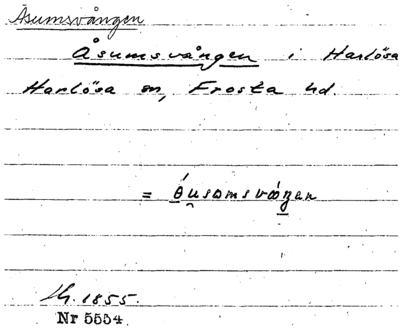 Åsumsvången
Åsumsvången i Harlösa
Harlösa sn, Frosta hd.
= óusomsvåŋen
1855.
Nr 5554